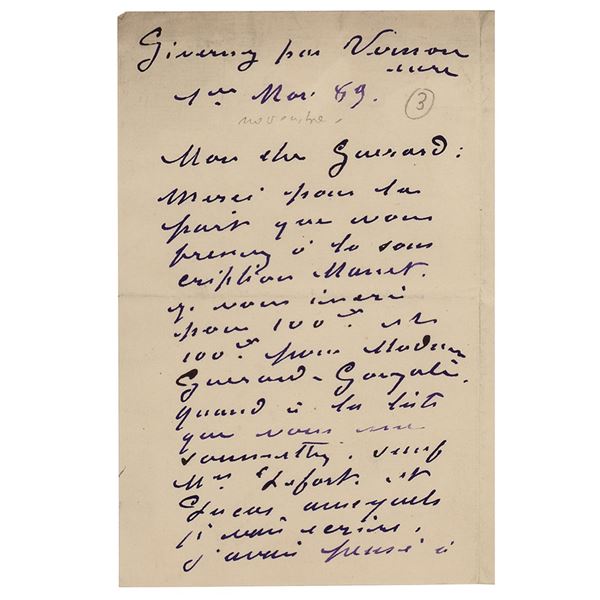 Giverny par Vernon
eure
1er Nov. 89.
3
novembre.
Mon cher Guerard:
Merci pour la
part que vous
prenez à la sous
cription Manet.
je vous inscris
pour 100 f. et
100 f. pour Madame
Guerard-Gonzalès.
quand à la liste
que vous me
soumettez, sauf
Mrs Lefort et
Lucas auxquels
je vais ecrire,
j'avais pensé à